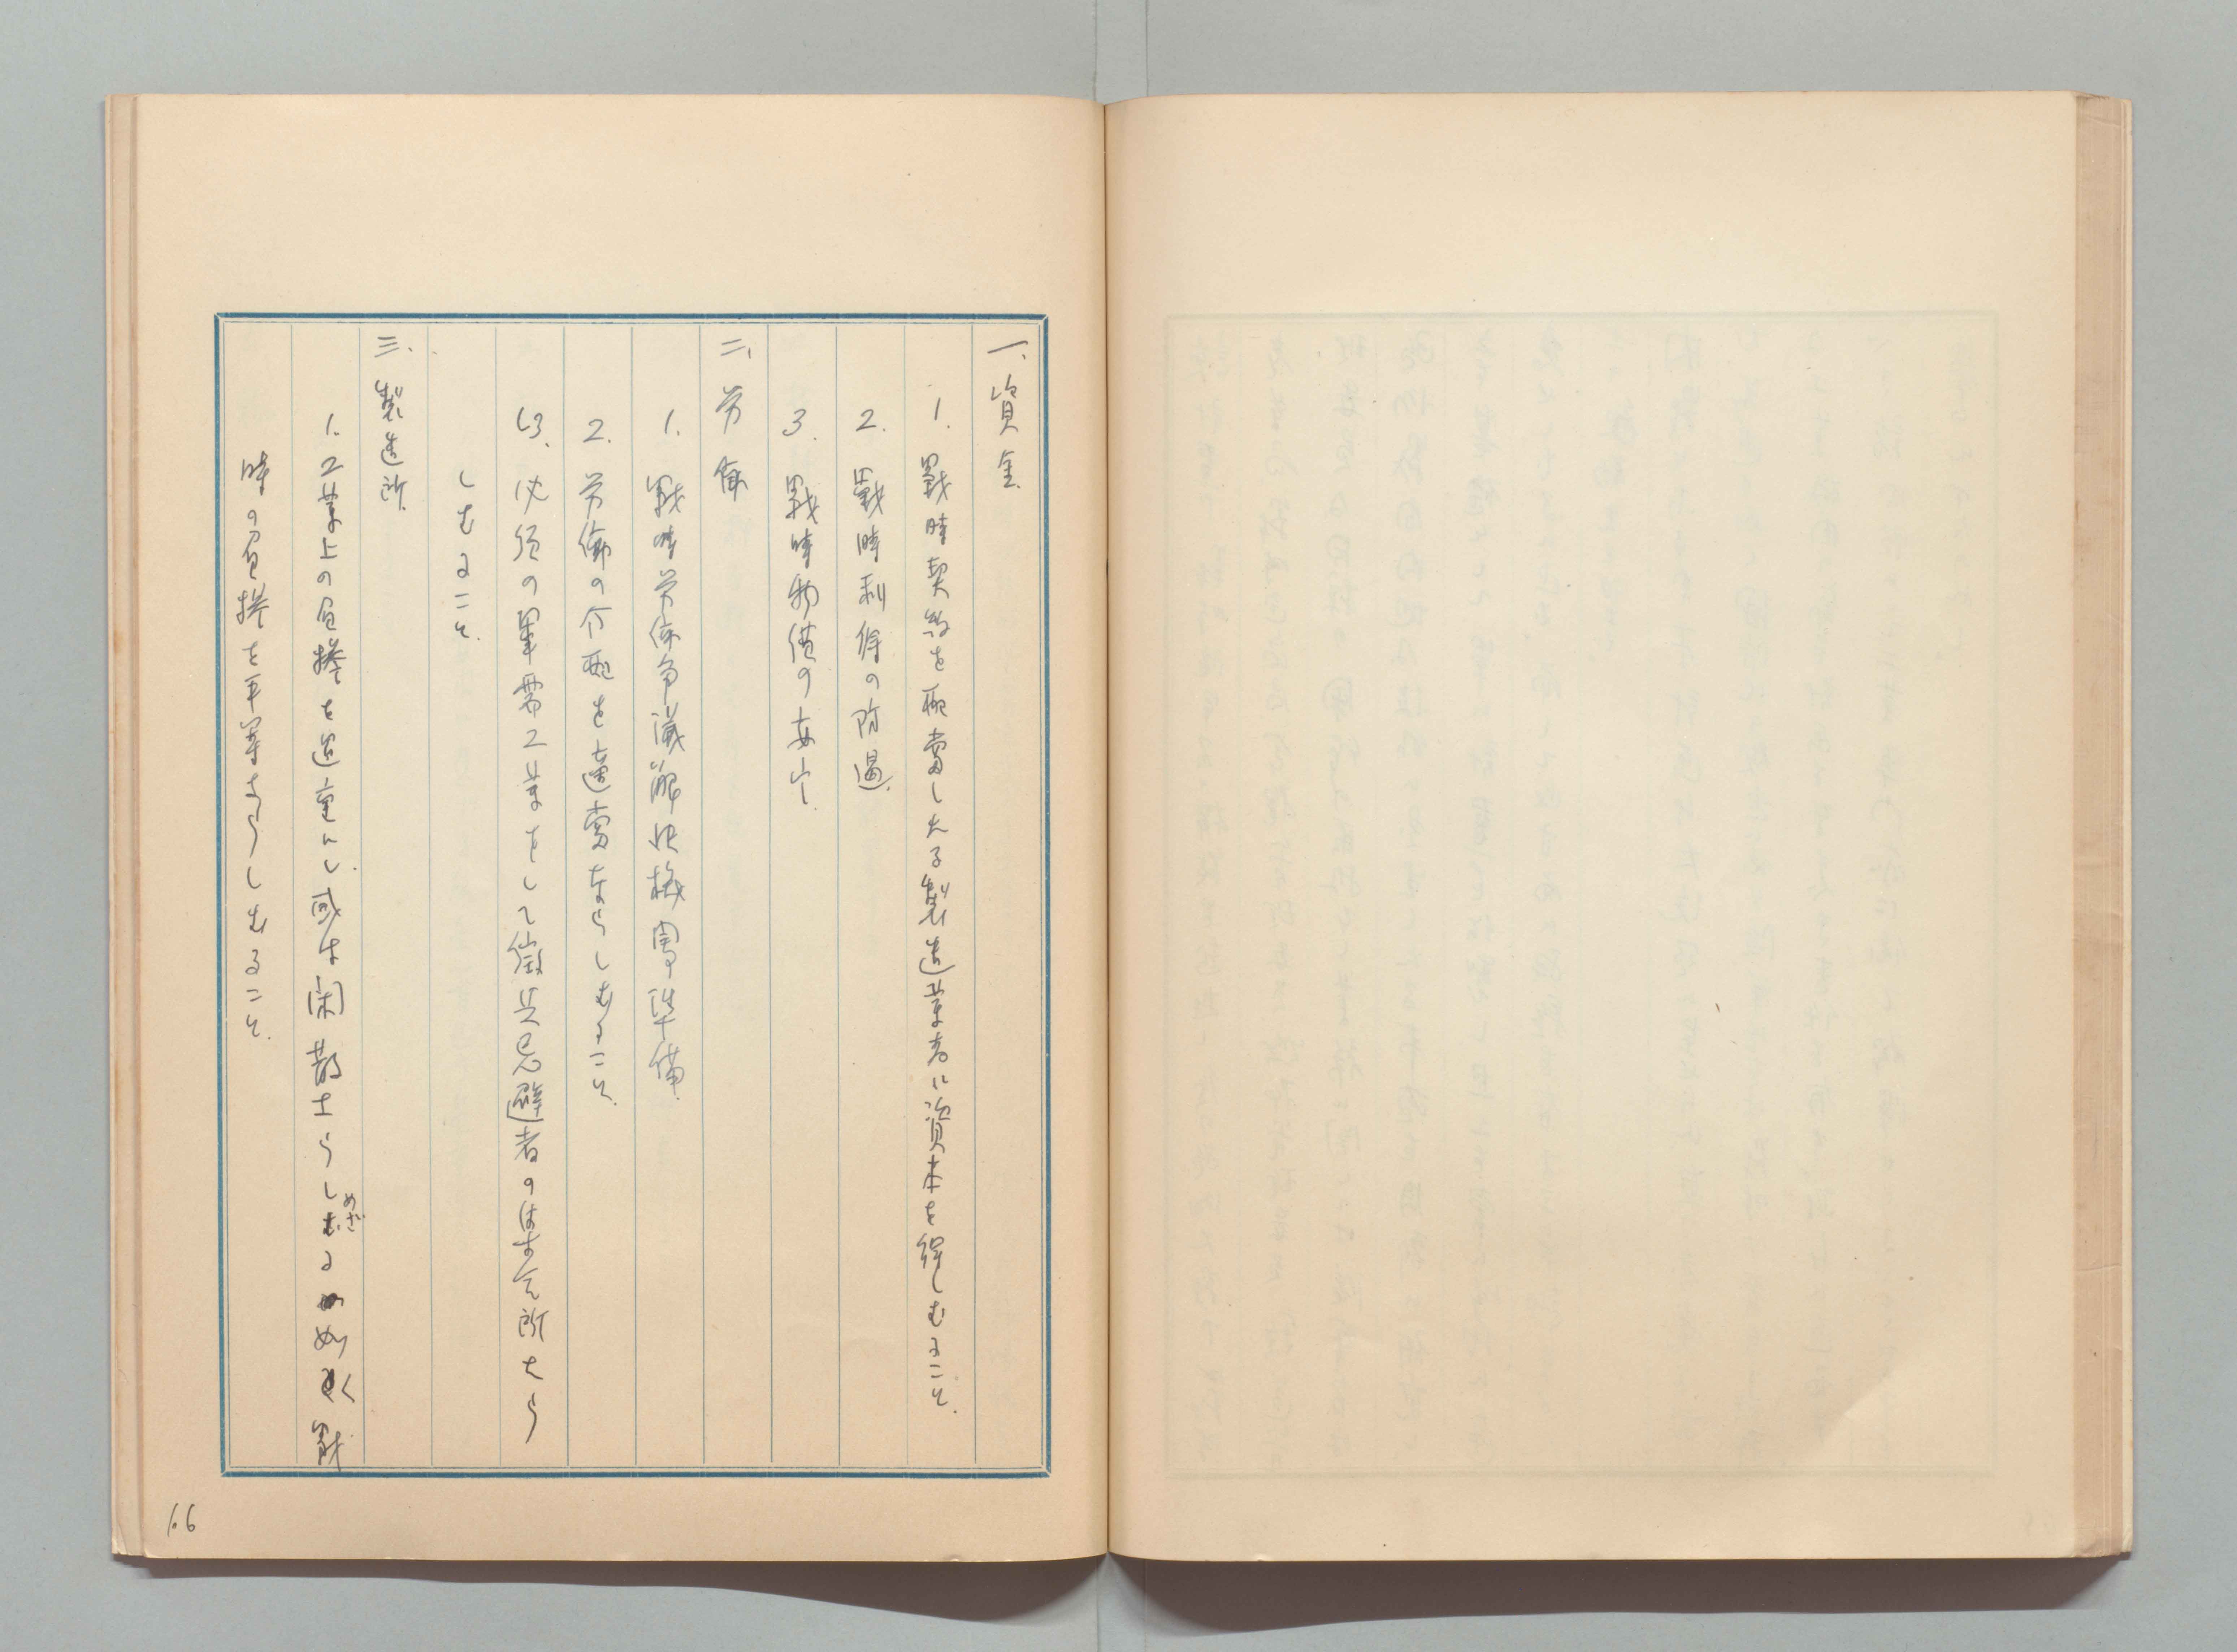 一、資金
1. 戰時契約を配當したる製造業者に資本を得しむること.
2. 戰時利得の防遏.
3. 戰時物價の安定.
二、労働
1. 戰時労働争議解決機關準備.
2. 労働の分配を適當ならしむること.
3. 必須の軍需工業をして徴兵忌避者の集合所たら
しむること.
三、製造所
1. 工業上の負擔を過重にし或は閑散ならしめざるの如く戰
時の負擔を平等ならしむること.
66